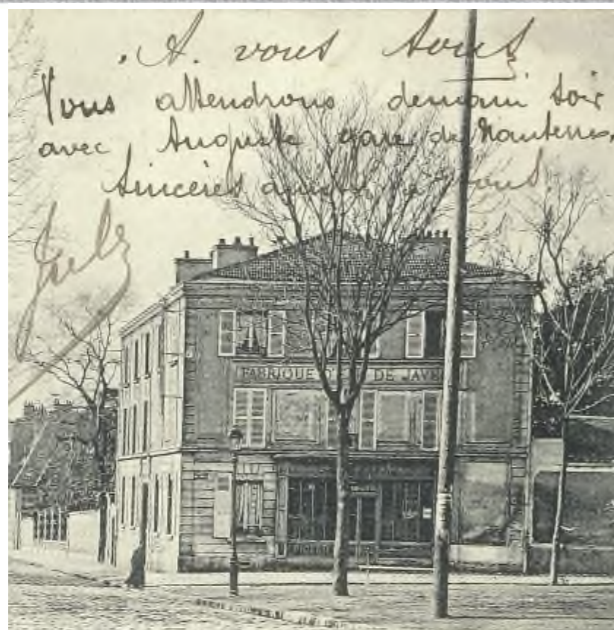 A vous tous
Vous attendrons demain soir
avec Auguste gare de Nanterre.
Sincères à vous
Jules
FABRIQUE D' DE JAVEL